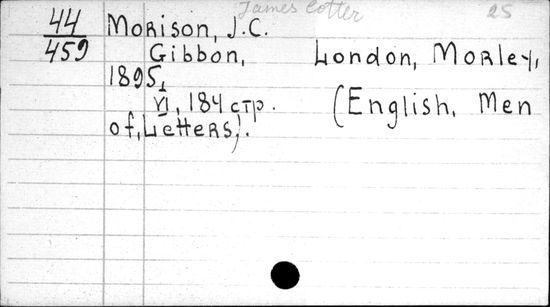 James Cotter 25
44 Morison, J.C.
459 Gibbon, London, Morley,
1895,
VI, 184 стр. (English, Men
of, Letters).